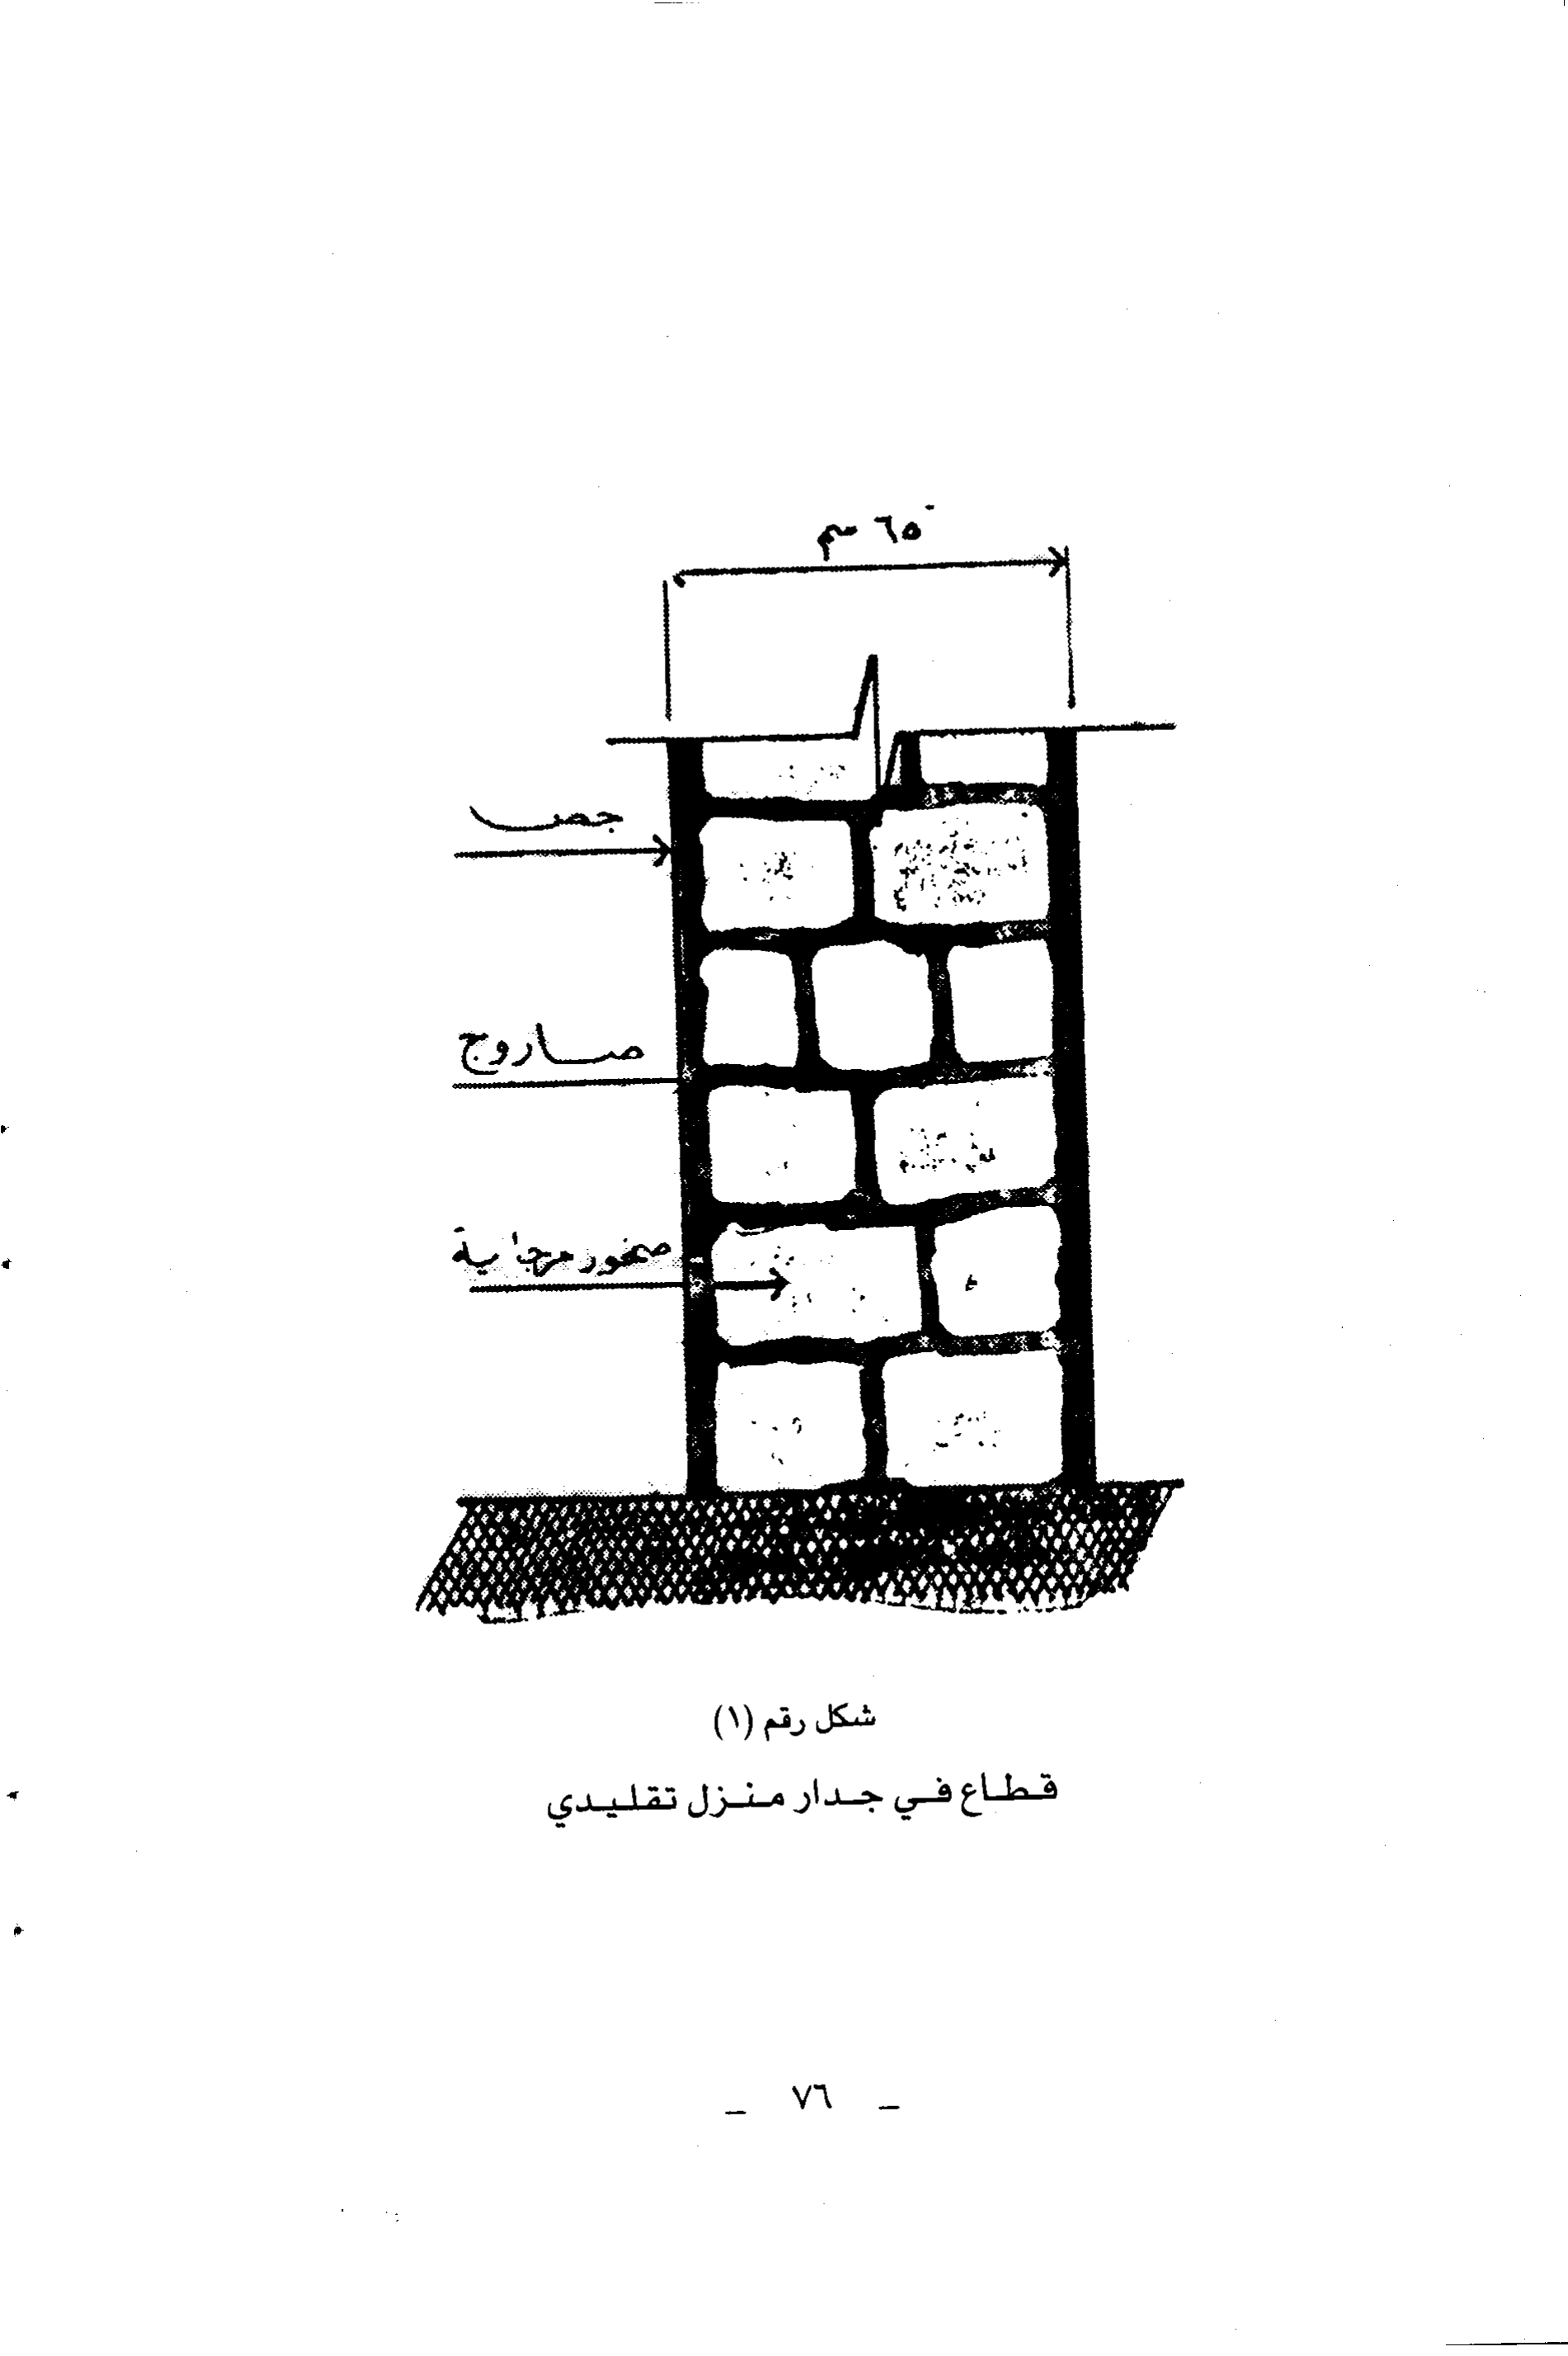 ٦٥ سم
جص
صاروج
صخور مرجانية
شكل رقم (١)
قطاع في جدار منزل تقليدي
_ ٧٦ _